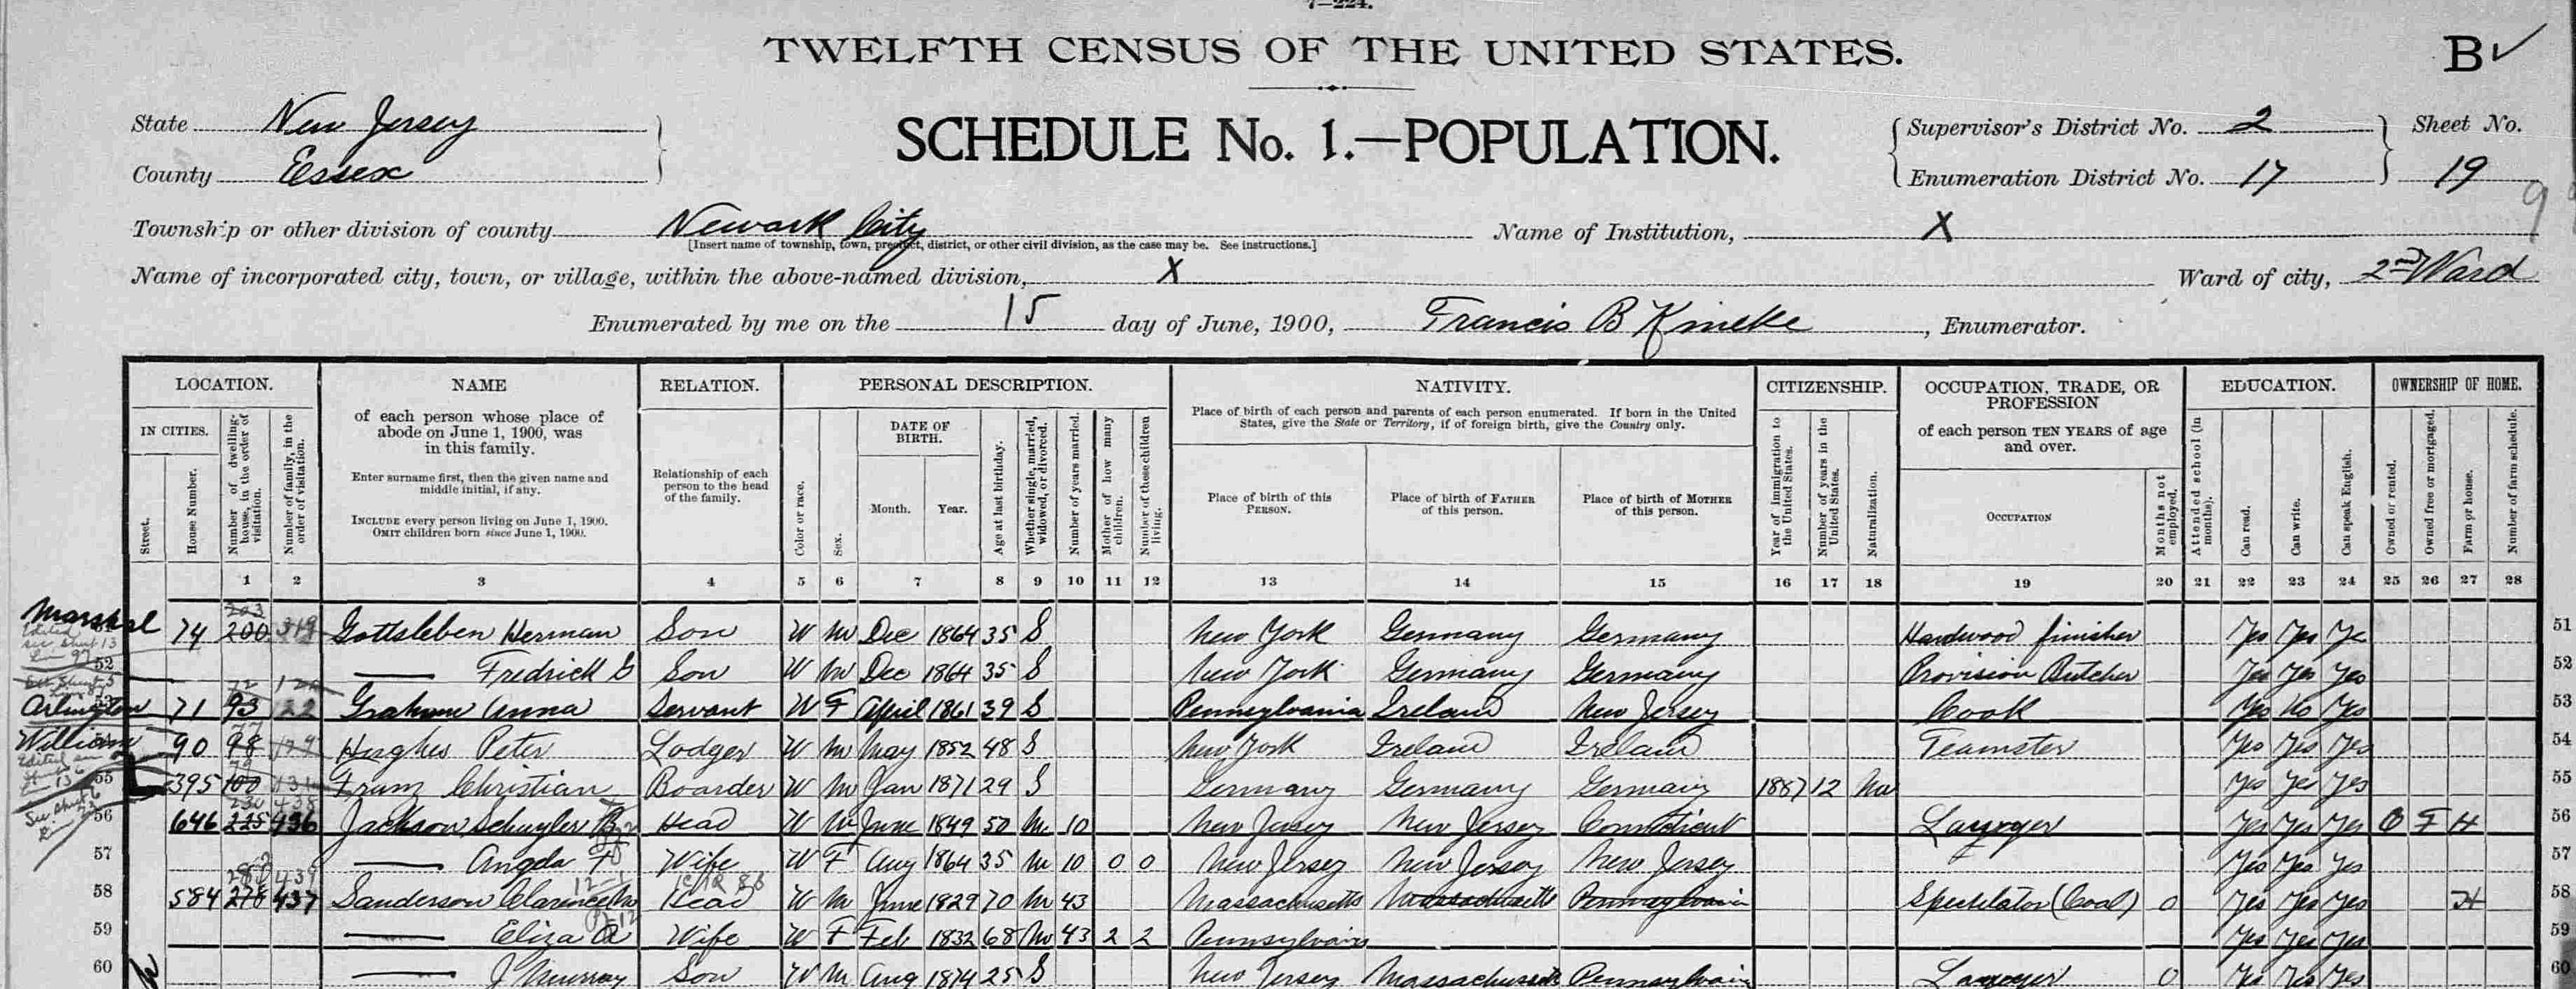 7—224.
TWELFTH CENSUS OF THE UNITED STATES.
B
SCHEDULE No. 1.—POPULATION.
State New Jersey
County Essex
Supervisor's District No. 2
Enumeration District No. 17
Sheet No.
19
9
Township or other division of county Newark City
[Insert name of township, town, precinct, district, or other civil division, as the case may be. See instructions.]
Name of Institution, X
Name of incorporated city, town, or village, within the above-named division, X
Ward of city, 2nd Ward
Enumerated by me on the 15 day of June, 1900, Francis B Kineke, Enumerator.
LOCATION. NAME RELATION. PERSONAL DESCRIPTION. NATIVITY. CITIZENSHIP. OCCUPATION, TRADE, OR PROFESSION EDUCATION. OWNERSHIP OF HOME.
IN CITIES.
Street.
House Number.
Number of dwelling-house, in the order of visitation.
Number of family, in the order of visitation.
of each person whose place of abode on June 1, 1900, was in this family.
Enter surname first, then the given name and middle initial, if any.
INCLUDE every person living on June 1, 1900.
OMIT children born since June 1, 1900.
Relationship of each person to the head of the family.
Color or race.
Sex.
DATE OF BIRTH.
Month. Year.
Age at last birthday.
Whether single, married, widowed, or divorced.
Number of years married.
Mother of how many children.
Number of these children living.
Place of birth of each person and parents of each person enumerated. If born in the United States, give the State or Territory, if of foreign birth, give the Country only.
Place of birth of this PERSON.
Place of birth of FATHER of this person.
Place of birth of MOTHER of this person.
Year of immigration to the United States.
Number of years in the United States.
Naturalization.
of each person TEN YEARS of age and over.
OCCUPATION
Months not employed.
Attended school (in months).
Can read.
Can write.
Can speak English.
Owned or rented.
Owned free or mortgaged.
Farm or house.
Number of farm schedule.
1 2 3 4 5 6 7 8 9 10 11 12 13 14 15 16 17 18 19 20 21 22 23 24 25 26 27 28
Marshal 74 200 Gottsleben Herman Son W M Dec 1864 35 S New York Germany Germany Hardwood finisher Yes Yes Ye 51
52 Fredrick G Son W M Dec 1864 35 S New York Germany Germany Provision Butcher Yes Yes Yes 52
Arlington 71 93 122 Graham Anna Servant W F April 1861 39 S Pennsylvania Ireland New Jersey Cook Yes No Yes 53
William 90 98 129 Hughes Peter Lodger W M May 1852 48 S New York Ireland Ireland Teamster Yes Yes Yes 54
55 395 100 Franz Christian Boarder W M Jan 1871 29 S Germany Germany Germany 1887 12 Na Yes Yes Yes 55
56 646 225 436 Jackson Schuyler B Head W M June 1849 50 M 10 New Jersey New Jersey Conneticut Lawyer Yes Yes Yes O F H 56
57 Angela Wife W F Aug 1864 35 M 10 0 0 New Jersey New Jersey New Jersey Yes Yes Yes 57
58 584 278 437 Sanderson Clarence M Head W M June 1829 70 M 43 Massachusetts Massachusetts Pennsylvania Speculator (Coal) 0 Yes Yes Yes H 58
59 Eliza A Wife W F Feb 1832 68 M 43 2 2 Pennsylvania Yes Yes Yes 59
60 J Murray Son W M Aug 1874 25 S New Jersey Massachusetts Pennsylvania Lawyer 0 Yes Yes Yes 60